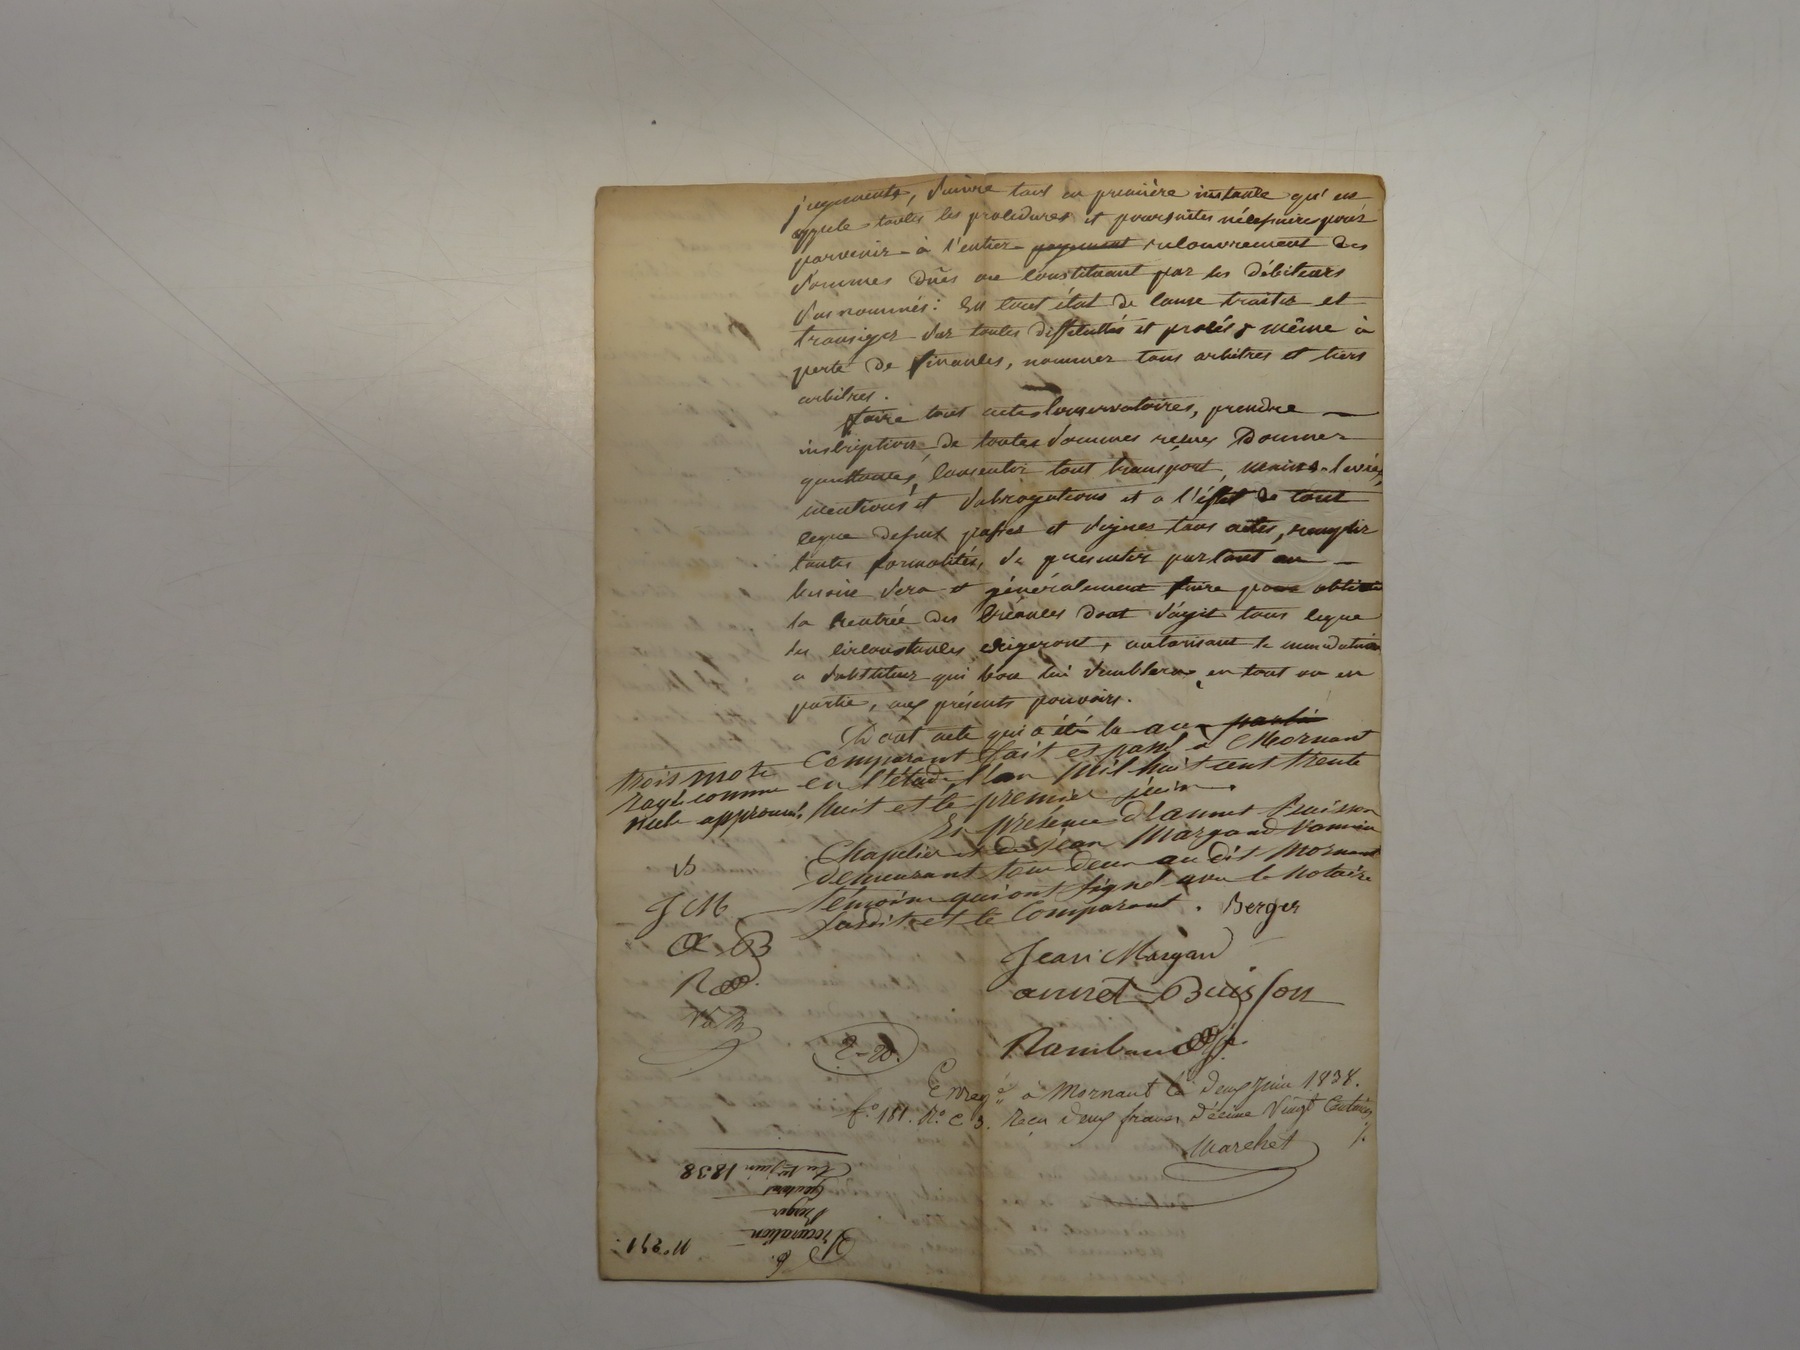 jugements, suivre tant en première instance qu'en
appele toutes les procédures et poursuites nécessaires pour
parvenir à l'entier payement recouvrement des
sommes dûes au constituant par les débiteurs
susnommés: En tout état de cause traiter et
transiger sur toutes difficultés et procès même à
perte de finances, nommer tous arbitres et tiers
arbitres.
faire tous actes conservatoires, prendre
inscriptions, de toutes sommes reçues Donner
quittances, consentir tout transport, mains-levées,
mentions et subrogations et a l'éffet de tout
ceque dessus passer et signer tous actes, remplir
toutes formalités, se presenter partout ou
besoin sera et généralement faire pour obtenir
la rentrée des créances dont s'agit tous ceque
les circonstances exigeront, autorisant le mandataire
a substituer qui bon lui semblera, en tout ou en
partie, aux présents pouvoirs.
Dont acte qui a été lu au partie
comparant fait et passé à Mornant
en l'étude, l'an mil huit cent trente
huit et le premier juin.
En présence d'annet Buisson
Chapelier et de jean Margand
demeurant tous deux au dit Mornant
témoins qui ont signé avec le notaire
susdit et le comparant. Berger
trois mots
rayés comme
nuls approuvés
B
J M
A B
R
Jean Margand
annet Buisson
Rambaud
2-20.
Enregé à Mornant le deux Juin 1838.
fo. 181. Ro. C 3. Reçu deux francs, décime Vingt Centimes
Marchet
No 241.
6.
Procuration
Berger
Du 1er juin 1838